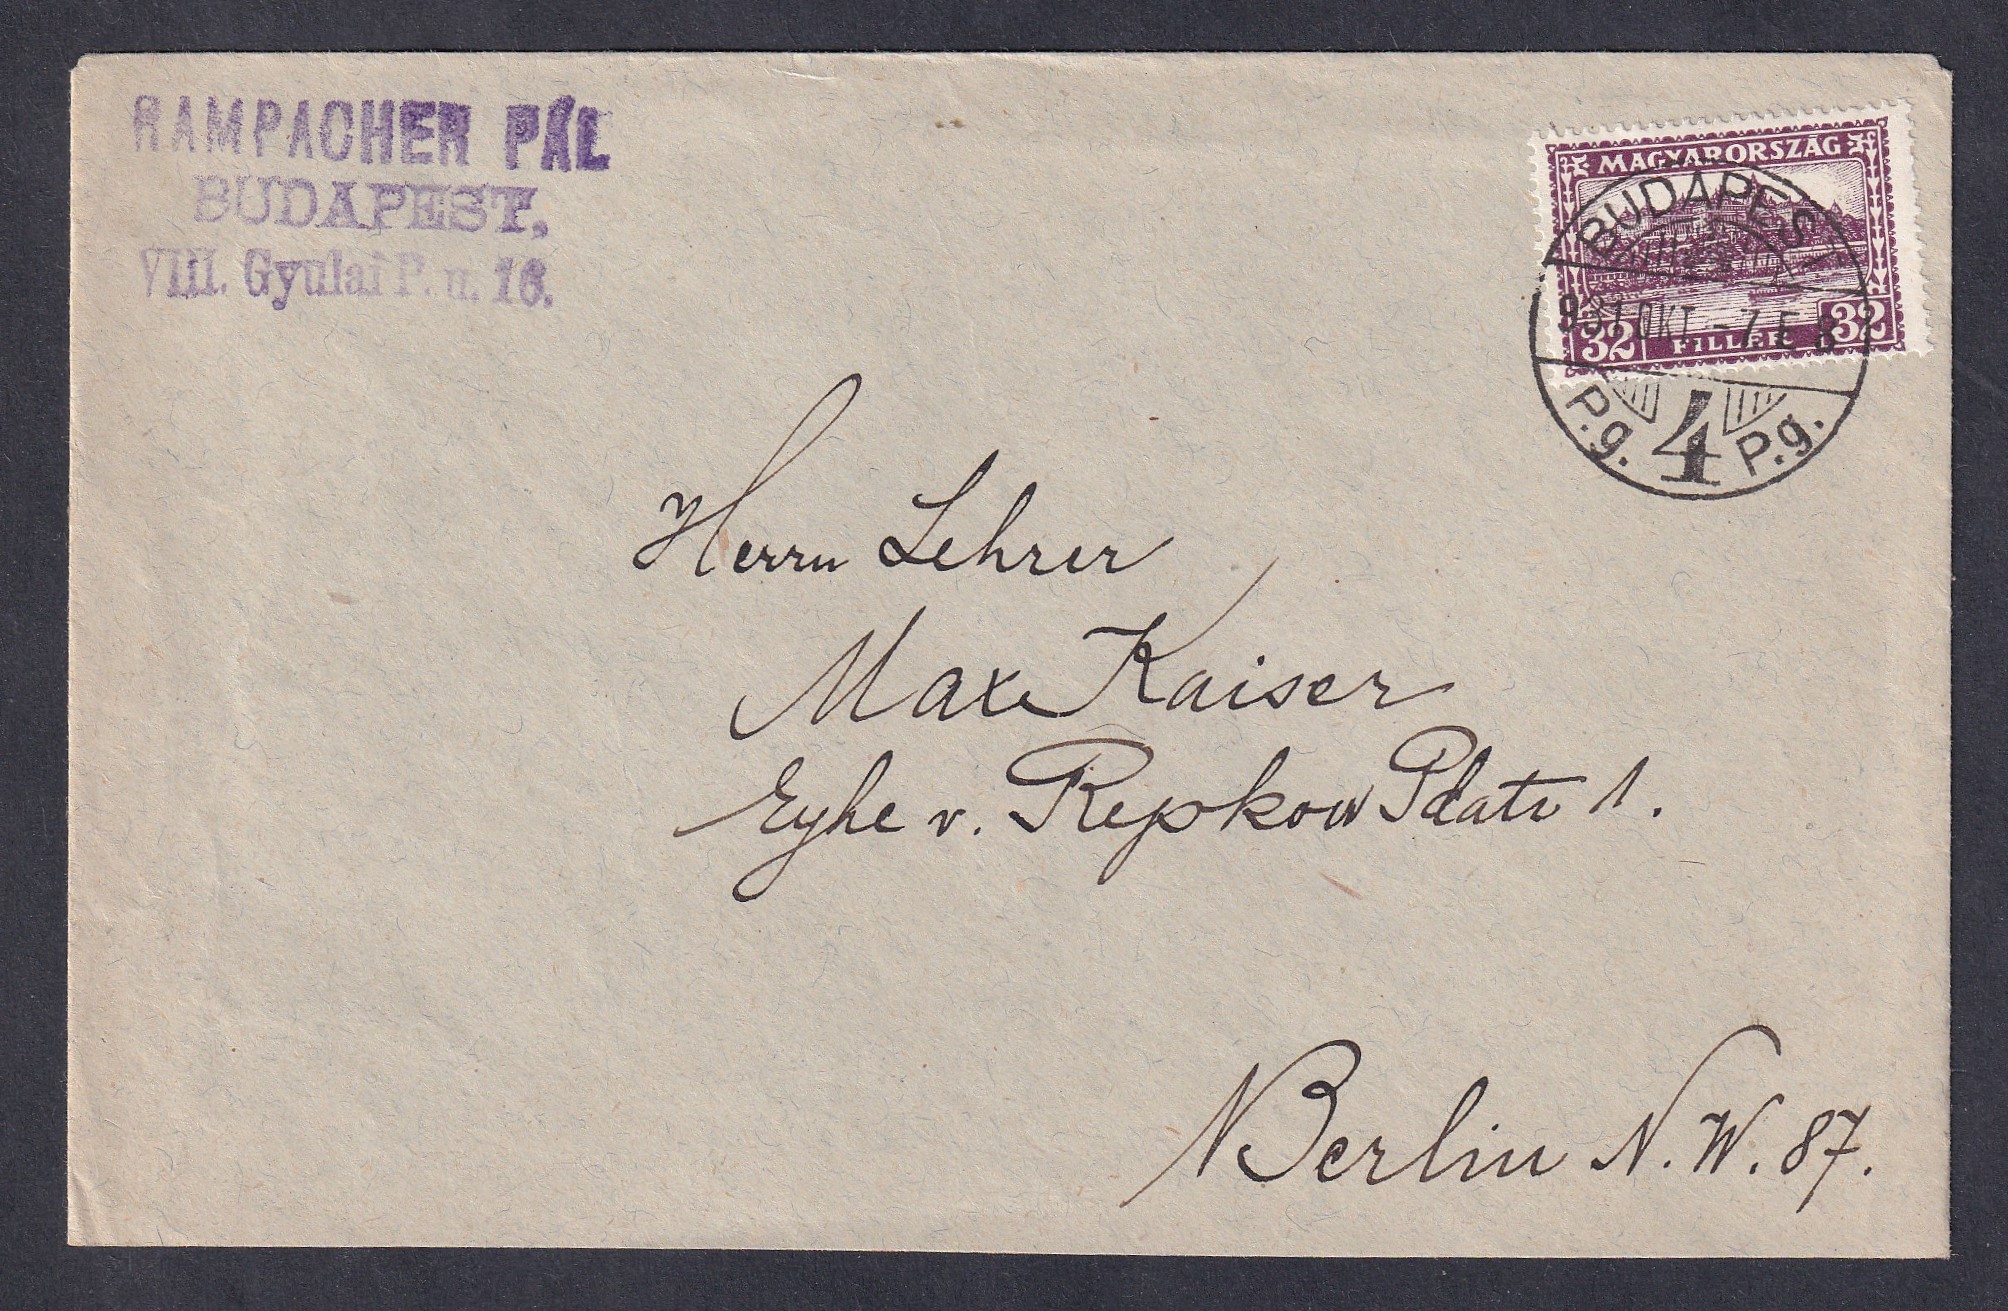 RAMPACHER PÁL
BUDAPEST,
VIII. Gyulai P. u. 16.
MAGYARORSZÁG
32 FILLÉR 32
BUDAPEST
931 OKT. -7. E 8
P.g. 4 P.g.
Herrn Lehrer
Max Kaiser
Eyke v. Repkow Platz 1.
Berlin N.W. 87.